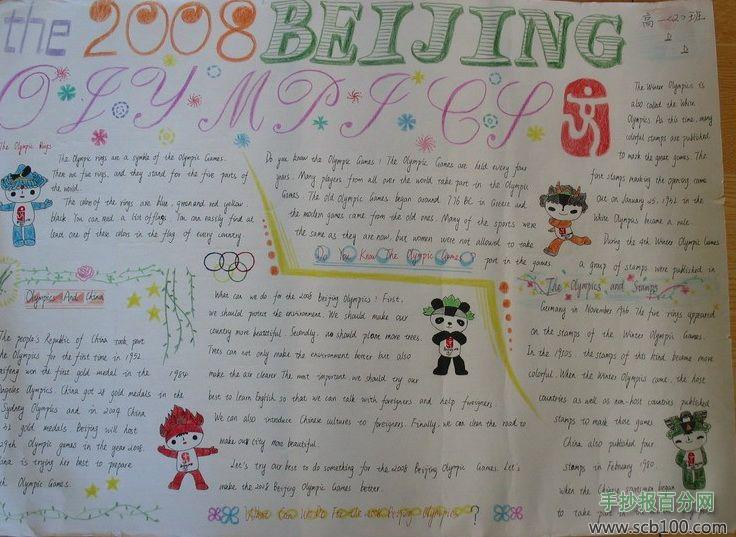 the 2008 BEIJING
OLYMPICS
高一(2)班
The Olympic Rings
The Olympic rings are a symble of the Olympic Games.
There are five rings, and they stand for the five parts of
the world.
The colors of the rings are blue, green and red yellow
black. You can read a list of flags. You can easily find at
least one of these colors in the flag of every country.
Do you know the Olympic Games? The Olympic Games are held every four
years. Many players from all over the world take part in the Olympic
Games. The old Olympic Games began around 776 BC in Greece and
the modern games came from the old ones. Many of the sports were
the same as they are now, but women were not allowed to take
part in the games.
Do You Know The Olympic Games?
The Winter Olympics is
also called the White
Olympics. At this time, many
colorful stamps are published
to mark the great games. The
first stamps marking the opening came
out on January 25, 1932 in the
White Olympics became a rule.
During the 4th Winter Olympic Games
a group of stamps were published in
The Olympics and Stamps
Germany in November 1936. The five rings appeared
on the stamps of the Winter Olympic Games.
In the 1950s, the stamps of this kind became more
colorful. When the Winter Olympics came, the host
countries as well as non-host countries published
stamps to mark those games.
China also published four
stamps in February 1980
when the Chinese sportsmen began
to take part in
Olympics And China
The people's Republic of China took part
the Olympics for the first time in 1952.
won the first gold medal in the 1984
Angeles Olympics. China got 28 gold medals in the
Sydney Olympics and in 2004 China
gold medals. Beijing will host
29th Olympic games in the year 2008.
China is trying her best to prepare
Olympic Games.
What can we do for the 2008 Beijing Olympics? First,
we should protect the environment. We should make our
country more beautiful. Secondly, we should plant more trees.
Trees can not only make the environment better but also
make the air clearer. The most important, we should try our
best to learn English so that we can talk with foreigners and help foreigners.
We can also introduce Chinese cultures to foreigners. Finally, we can clean the road to
make our city more beautiful.
Let's try our best to do something for the 2008 Beijing Olympic Games. Let's
make the 2008 Beijing Olympic Games better.
What Can We Do For the 2008 Beijing Olympics?
手抄报百分网
www.scb100.com